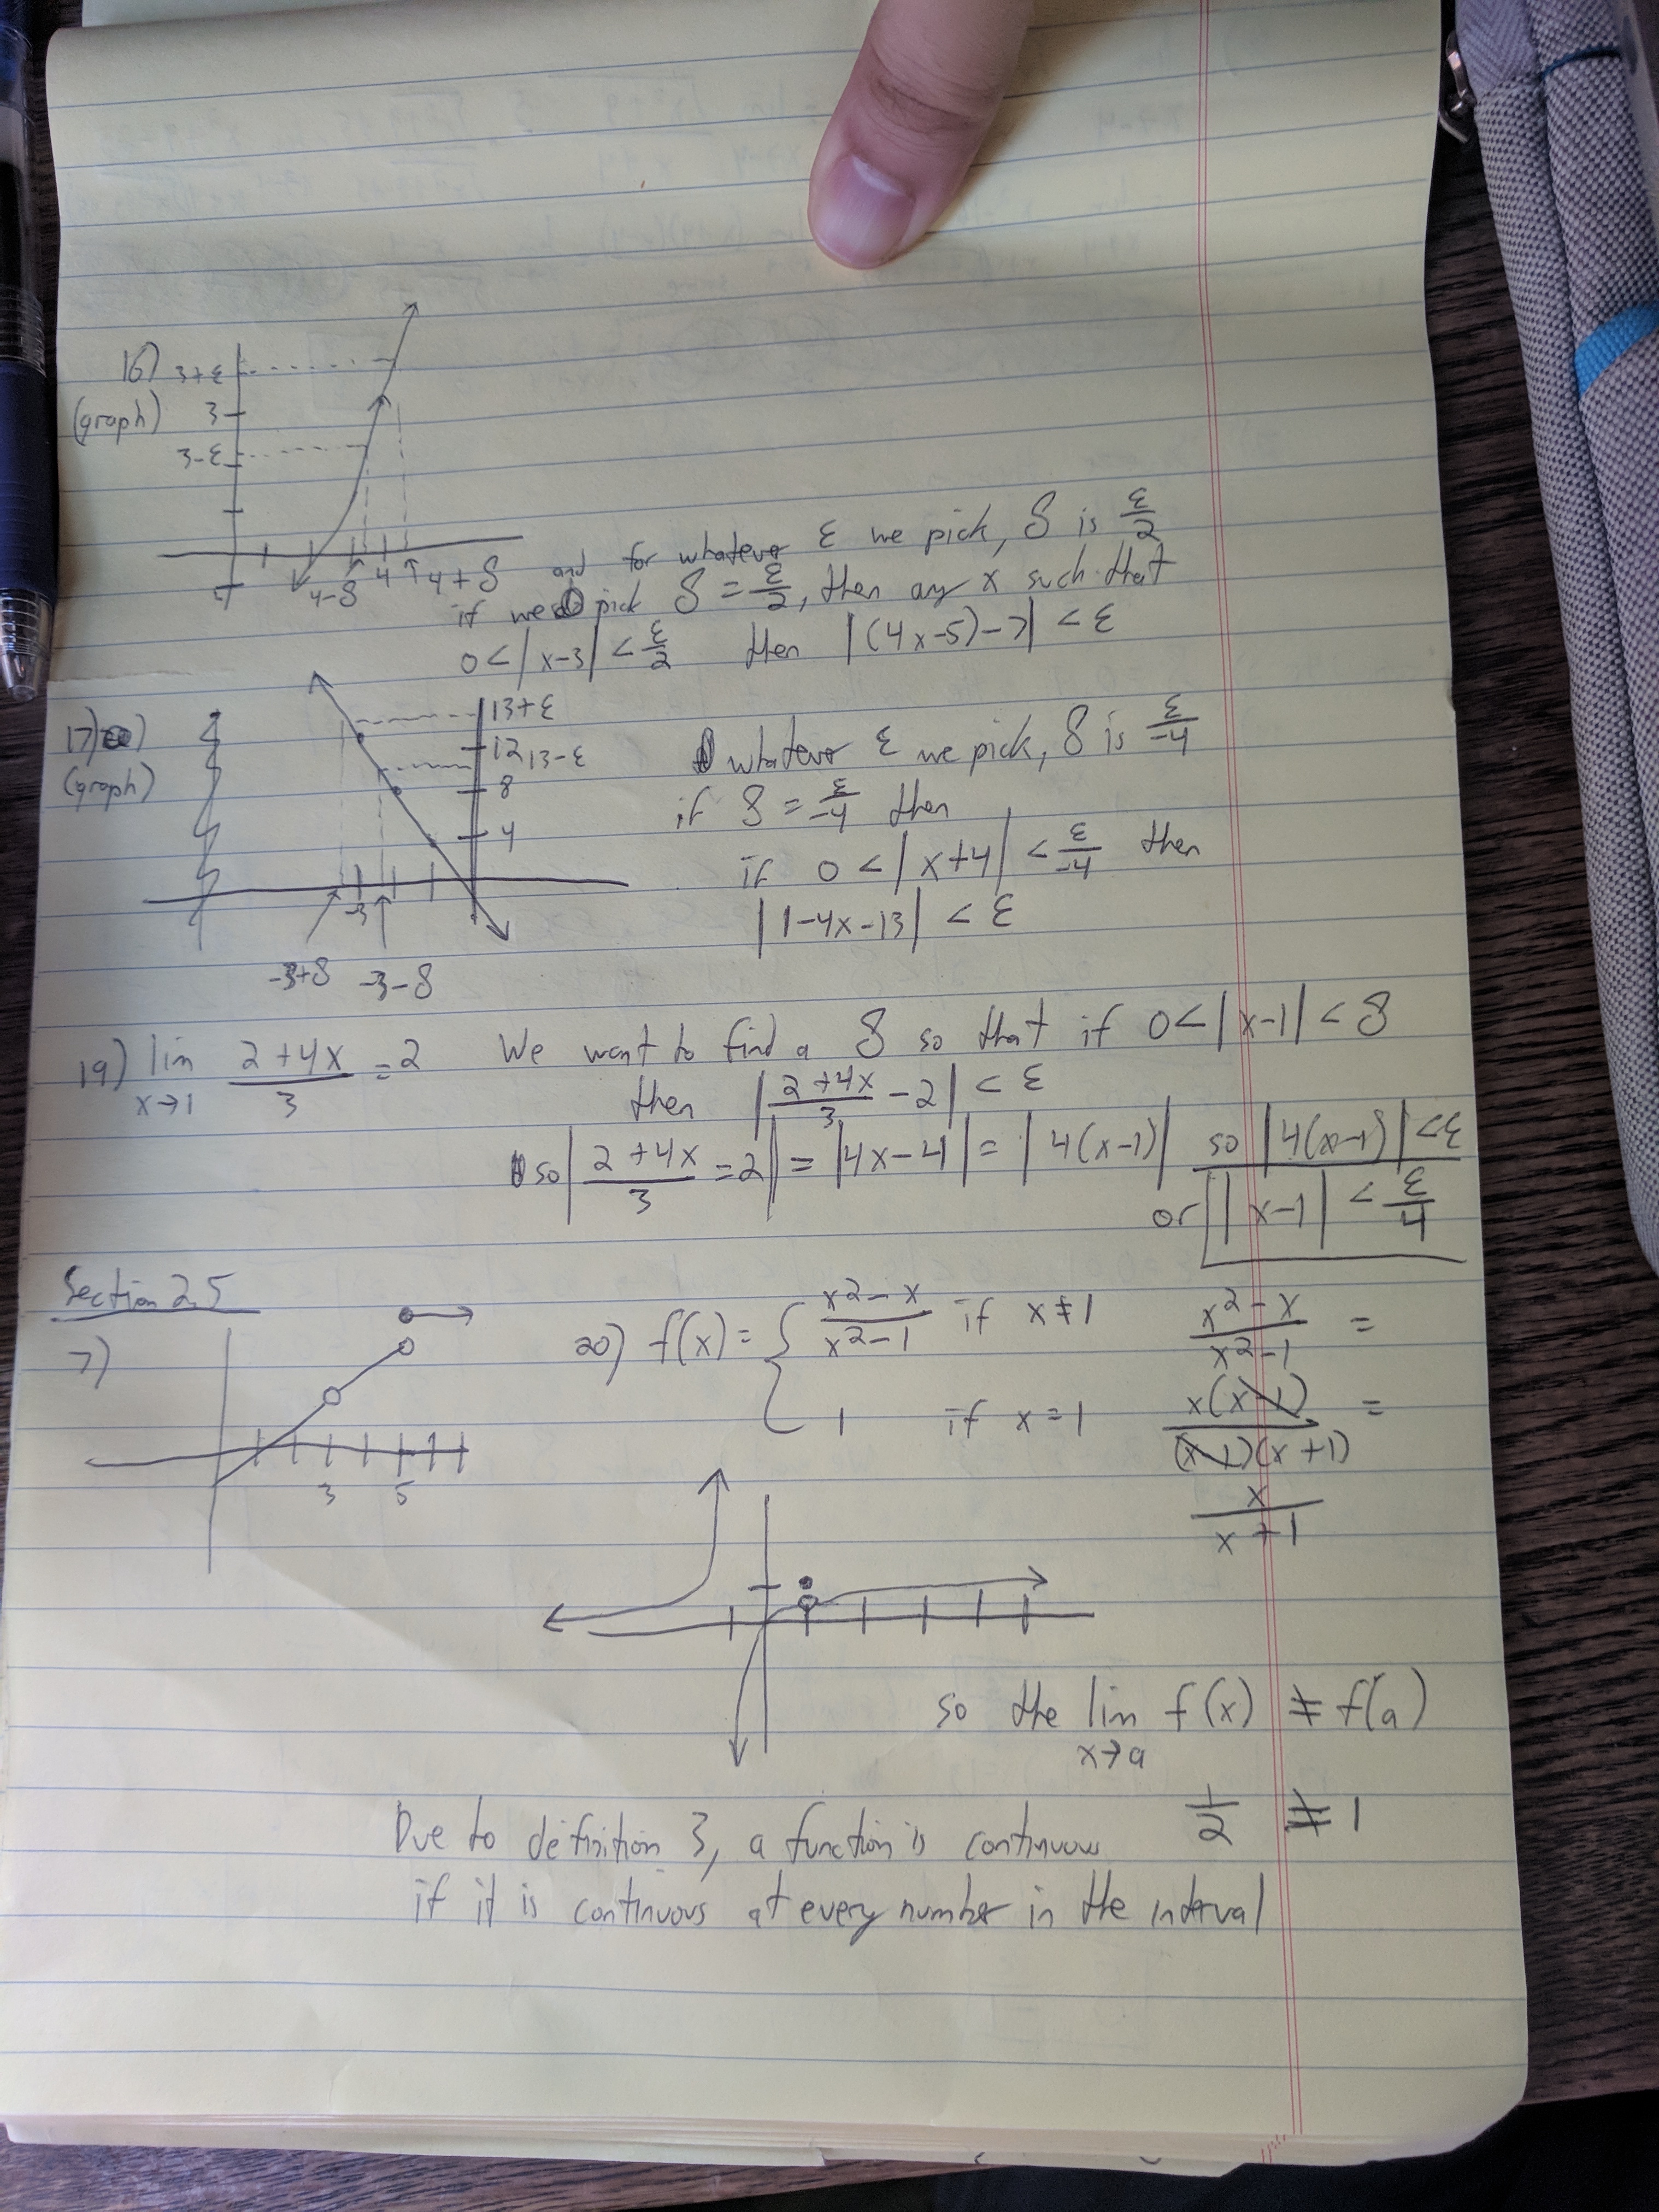 16)
(graph)
3+ε
3
3-ε
4-δ 4 4+δ
and for whatever ε we pick, δ is ε/2
if we pick δ = ε/2, then any x such that
0<|x-3|<ε/2 then |(4x-5)-7| < ε
17)
(graph)
13+ε
12 13-ε
8
4
-3
-3+δ -3-δ
whatever ε we pick, δ is ε/-4
if δ = ε/-4 then
if 0 < |x+4| < ε/-4 then
|1-4x-13| < ε
19) lim x→1 (2+4x)/3 = 2 We want to find a δ so that if 0<|x-1|<δ
then |(2+4x)/3 - 2| < ε
so |(2+4x)/3 = 2| = |4x-4| = |4(x-1)| so |4(x-1)|<ε
or |x-1| < ε/4
Section 2.5
7)
3 5
20) f(x) = { (x²-x)/(x²-1) if x≠1
1 if x=1
(x²-x)/(x²-1) =
x(x-1)/(x-1)(x+1) =
x/(x+1)
so the lim x→a f(x) ≠ f(a)
1/2 ≠ 1
Due to definition 3, a function is continuous
if it is continuous at every number in the interval